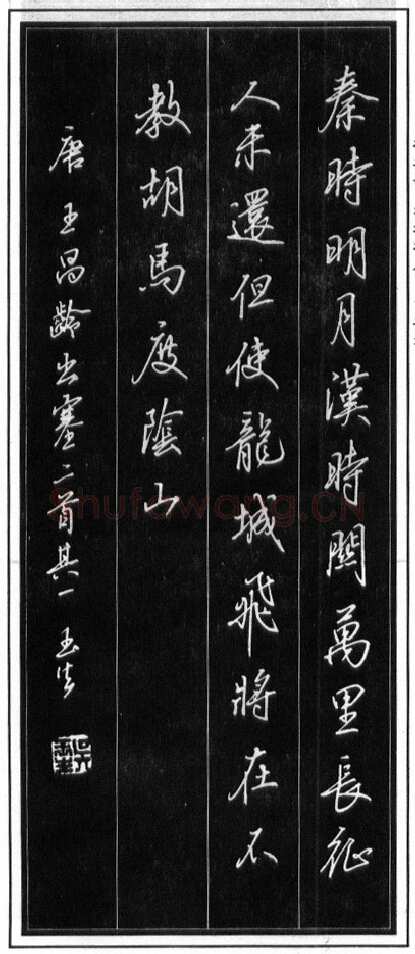 秦時明月漢時關萬里長征
人未還但使龍城飛將在不
教胡馬度陰山
唐王昌齡出塞二首其一
Shufawang.CN